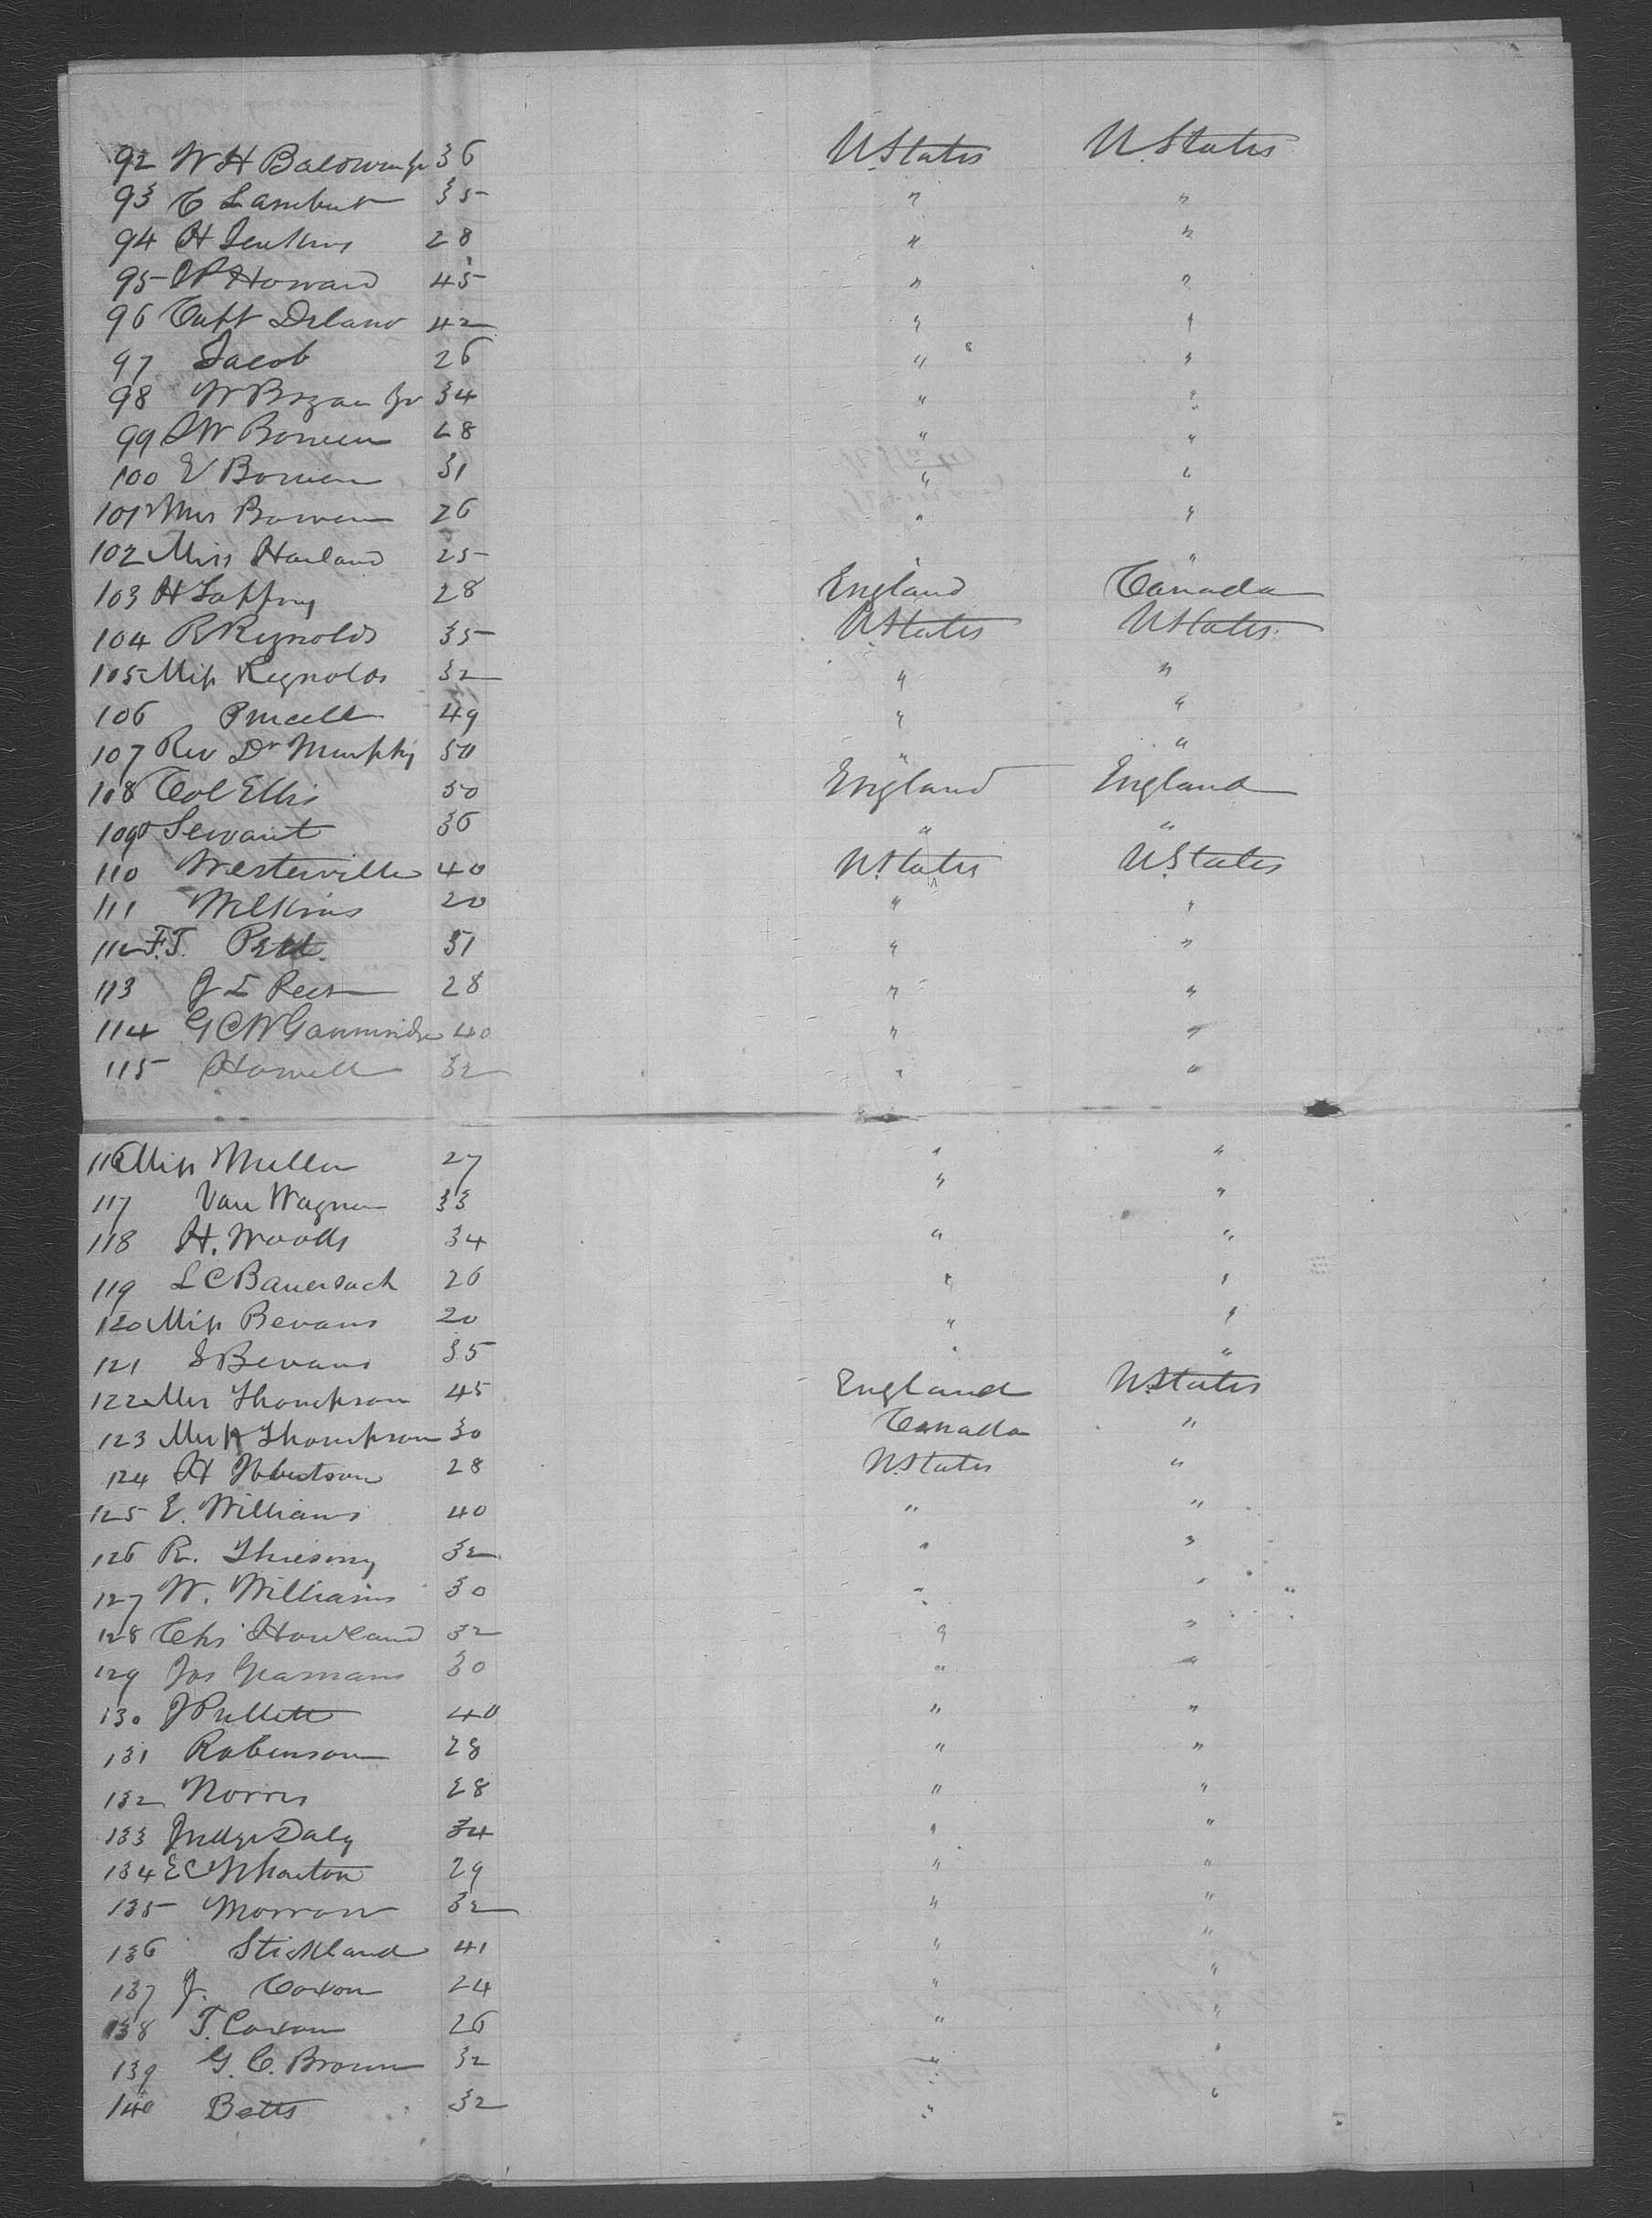 92 W H Baldwin Jr 36 U.States U.States
93 C Lambert 35 " "
94 H Jenkins 28 " "
95 Howard 45 " "
96 Capt Delano 42 " "
97 Jacob 26 " "
98 W Bryan Jr 34 " "
99 J W Bowen 28 " "
100 E Bowen 31 " "
101 Mrs Bowen 26 " "
102 Miss Harland 25 " "
103 H 28 England Canada
104 R Reynolds 35 U.States U.States
105 Miss Reynolds 32 " "
106 Purcell 49 " "
107 Rev Dr Murphy 50 " "
108 Col Ellis 50 England England
109 Servant 36 " "
110 Westerville 40 U.States U.States
111 Wilkins 20 " "
112 F.T. 31 " "
113 J L 28 " "
114 G C W 40 " "
115 Howell 32 " "
116 Miss Muller 27 " "
117 Van Wagner 33 " "
118 H. Woods 34 " "
119 L C Bauersach 26 " "
120 Miss Bevans 20 " "
121 S Bevans 35 " "
122 Mrs Thompson 45 England U.States
123 Mrs A Thompson 30 Canada "
124 H 28 U.States "
125 E. Williams 40 " "
126 R. 32 " "
127 W. Williams 30 " "
128 Chs Howland 32 " "
129 Jos 30 " "
130 J Pullett 40 " "
131 Robinson 28 " "
132 Norris 28 " "
133 Judge Daly 34 " "
134 E C Wharton 29 " "
135 Morrow 32 " "
136 Stickland 41 " "
137 J. Coxon 24 " "
138 T. Coxon 26 " "
139 G. C. Brown 32 " "
140 Betts 32 " "